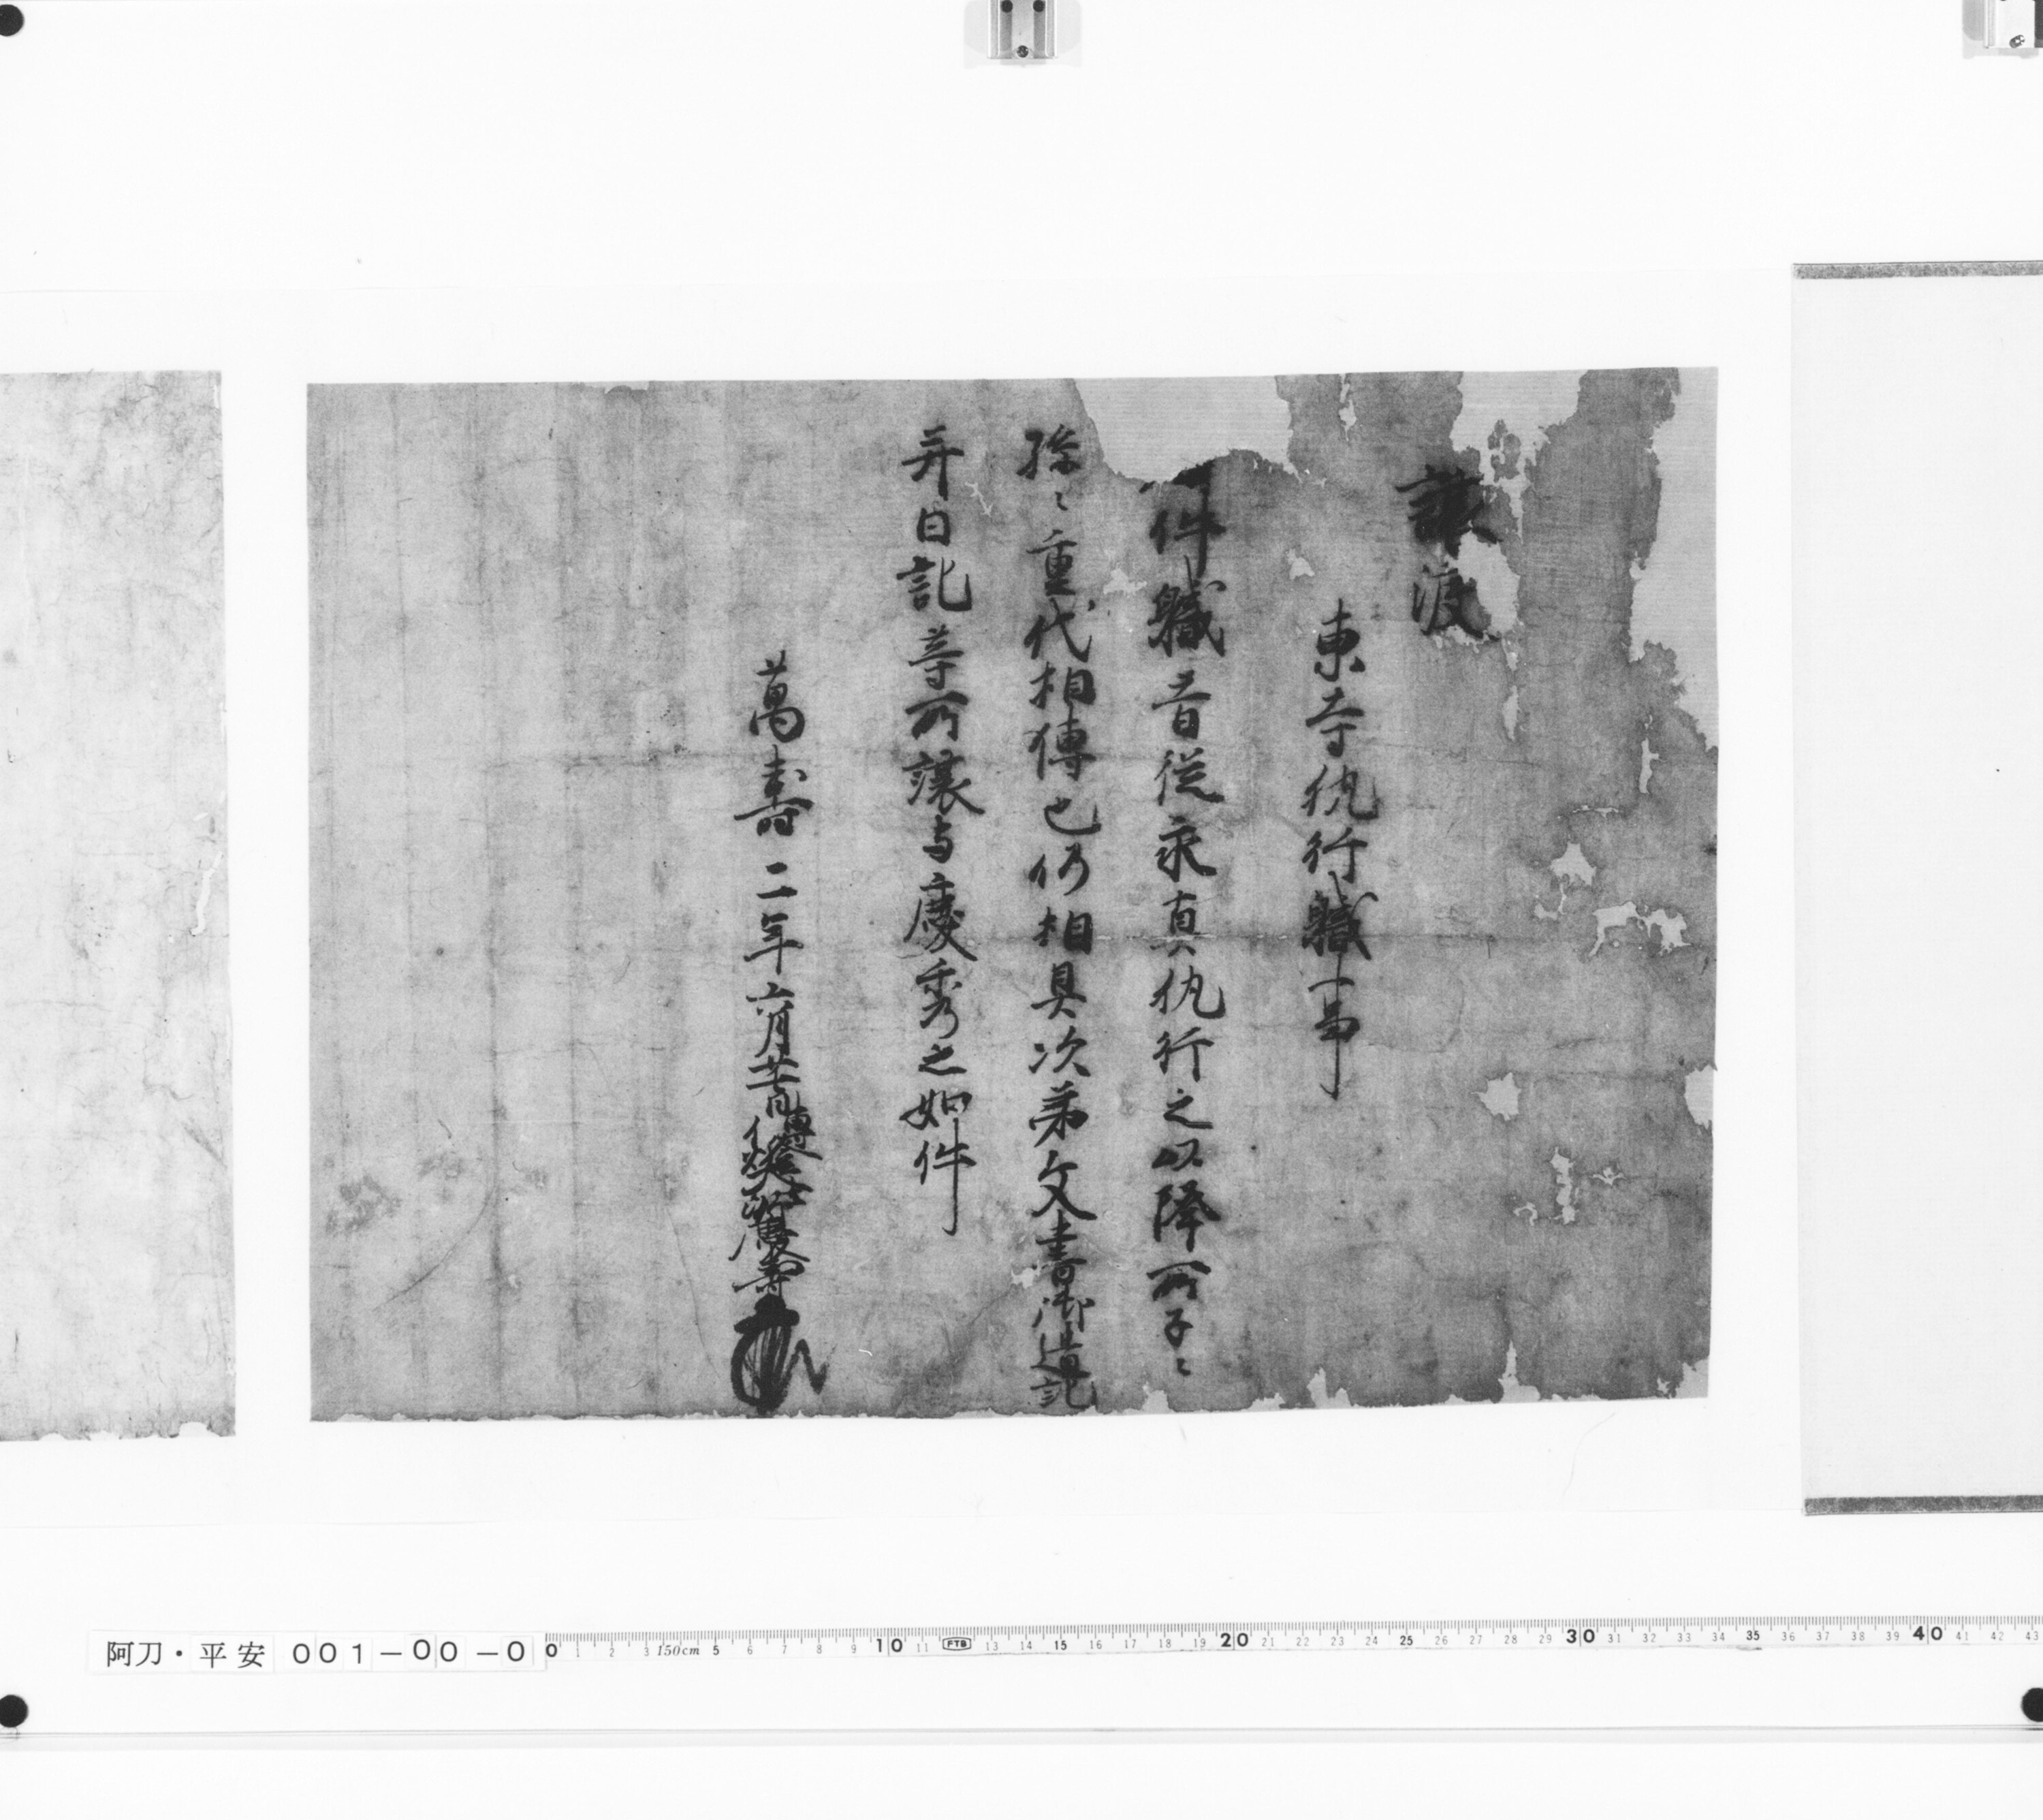 譲渡
東寺執行職事
件職者従永真執行之以降所子〻
孫〻重代相傳也仍相具次第文書御遺記
并日記等所讓与慶秀之如件
萬壽二年六月廿
阿刀・平安 001-00-0
0 1 2 3 150cm 5 6 7 8 9 10 11 FTB 13 14 15 16 17 18 19 20 21 22 23 24 25 26 27 28 29 30 31 32 33 34 35 36 37 38 39 40 41 42 43